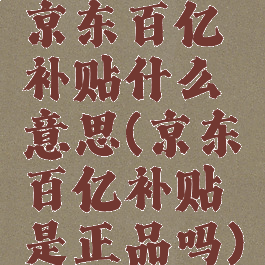 京东百亿
补贴什么
意思(京东
百亿补贴
是正品吗)